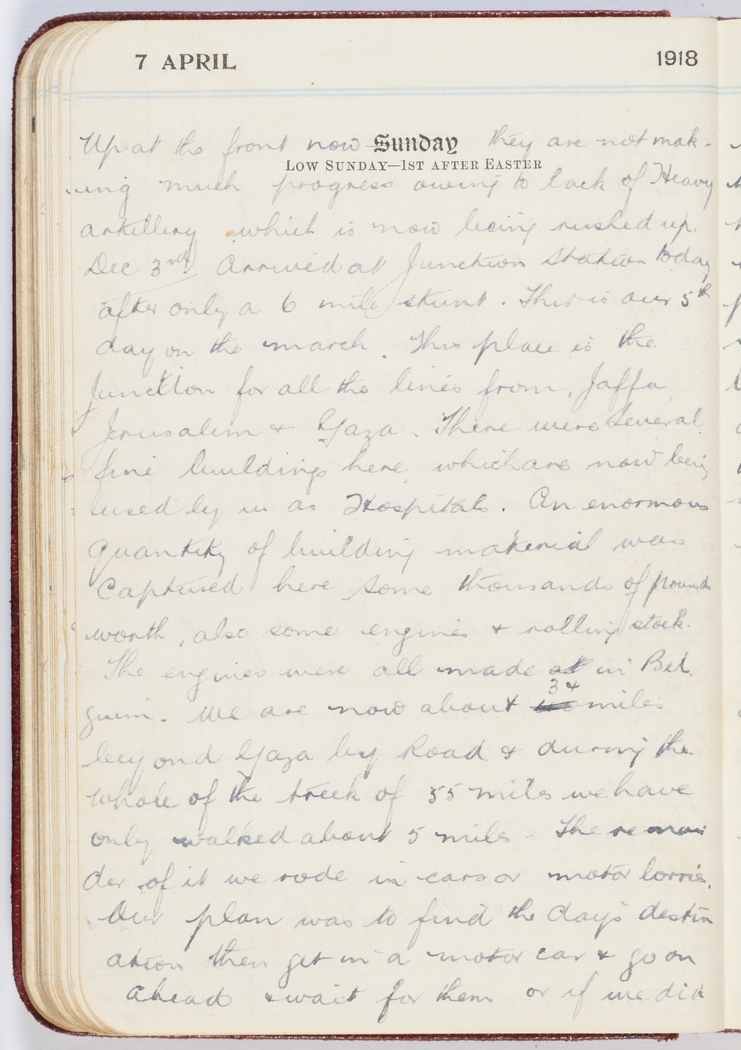 7 APRIL 1918
Up at the front now Sunday they are not mak-
LOW SUNDAY—1ST AFTER EASTER
ing much progress owing to lack of Heavy
artillery which is now being rushed up.
Dec 3rd Arrived at Junction Station today
after only a 6 mile stunt. This is our 5th
day on the march. This place is the
Junction for all the lines from, Jaffa
Jerusalem & Gaza. There were several
fine buildings here which are now being
used by us as Hospitals. An enormous
quantity of building material was
captured here some thousands of pounds
worth, also some engines & rolling stock.
The engines were all made at in Bel
guim. We are now about 34 miles
beyond Gaza by Road & during the
whole of the treek of 55 miles we have
only walked about 5 miles. The remain
der of it we rode in cars or motor lorries.
Our plan was to find the days destin
ation then get in a motor car & go on
ahead & wait for them or if we did